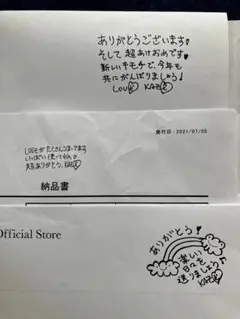 ありがとうございます
そして超あけおめです
新しいキモチで、今年も
共にがんばりましょう!
LOVE KAZ
発行日:2021/07/05
LOVEがたくさんつまってます
いっぱい使ってね
超ありがとう。KAZ
納品書
Official Store
ありがとう!
楽しい
日々を
送りましょう
KAZ